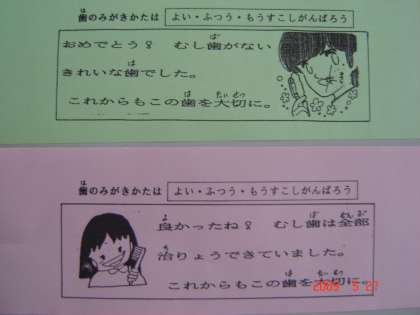 歯のみがきかたは よい・ふつう・もうすこしがんばろう
おめでとう♀ むし歯がない
きれいな歯でした。
これからもこの歯を大切に。
歯のみがきかたは よい・ふつう・もうすこしがんばろう
良かったね♀ むし歯は全部
治りょうできていました。
これからもこの歯を大切に。
2005 5 27